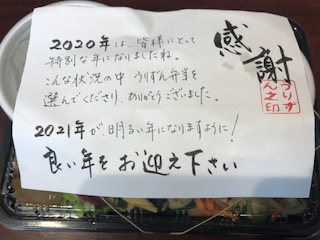 感謝
うりずん之印
2020年は、皆様にとって
特別な年になりましたね。
こんな状況の中 うりずん弁当を
選んでくださり、ありがとうございました。
2021年が、明るい年になりますように！
良い年をお迎え下さい